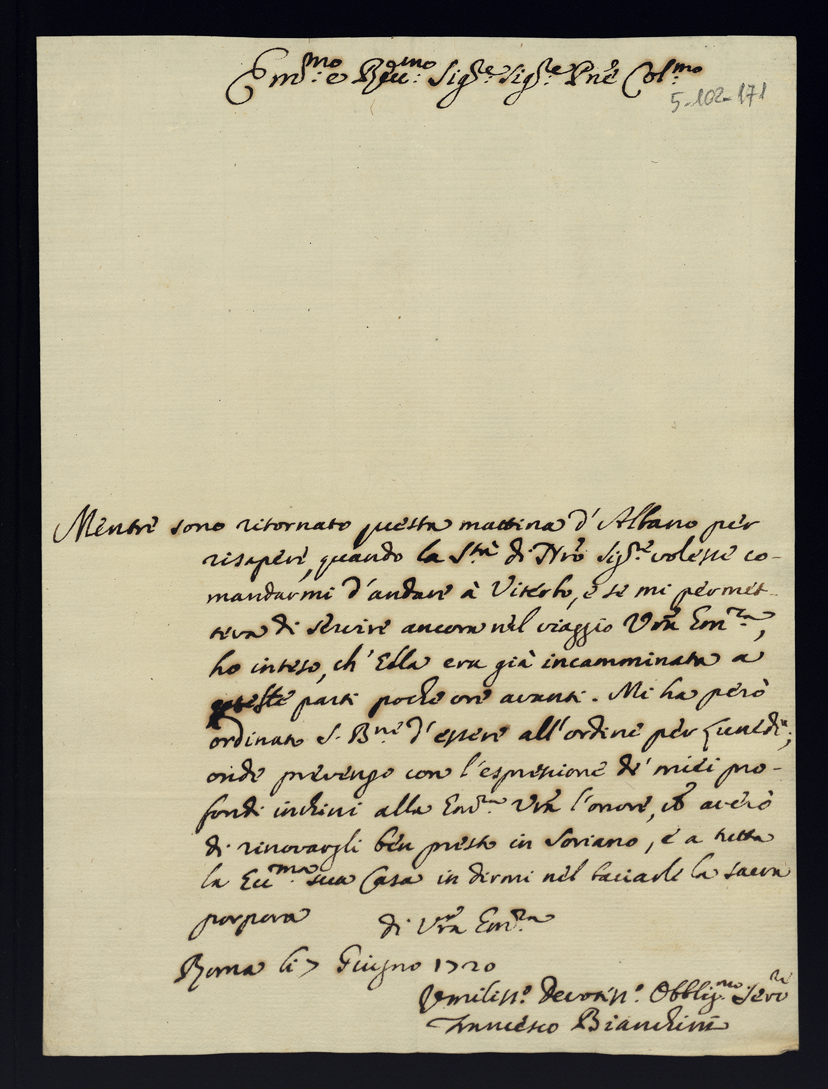 Em.mo e R.mo Sig.re Sig.re Pne Col.mo
5-102-171
Mentre sono ritornato questa mattina d'Albano per
risapere, quando la S.tà di Nro Sig.re volesse co-
mandarmi d'andare à Viterbo, e se mi permet-
teva di servire ancora nel viaggio Vra Em.za,
ho inteso, ch'Ella era già incamminata a
coteste parti poche ore avanti. Mi ha però
ordinato S. B.ne d'essere all'ordine per Lunedì;
onde prevengo con l'espressione de' miei pro-
fondi inchini alla Em.za Vra l'onore, che averò
di rinovargli ben presto in Soriano, e a tutta
la Ecc.ma sua Casa in dirmi nel baciarle la sacra
porpora di Vra Em.za
Roma li 7 Giugno 1720
Umiliss.o Devotiss.o Obblig.mo Serv.re
Francesco Bianchini